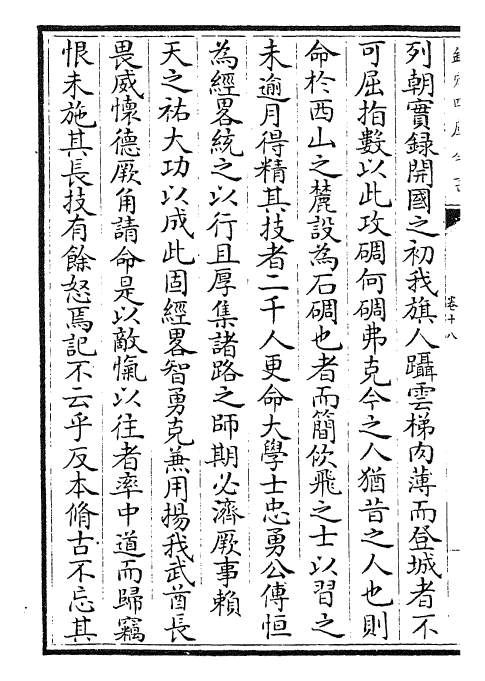 欽定四庫全書
卷十八
列朝實録開國之初我旗人躡雲梯肉薄而登城者不
可屈指數以此攻碉何碉弗克今之人猶昔之人也則
命於西山之麓設為石碉也者而簡佽飛之士以習之
未逾月得精其技者二千人更命大學士忠勇公傅恒
為經畧統之以行且厚集諸路之師期必濟厥事賴
天之祐大功以成此固經畧智勇克兼用揚我武酋長
畏威懷德厥角請命是以敵愾以往者率中道而歸竊
恨未施其長技有餘怒焉記不云乎反本脩古不忘其